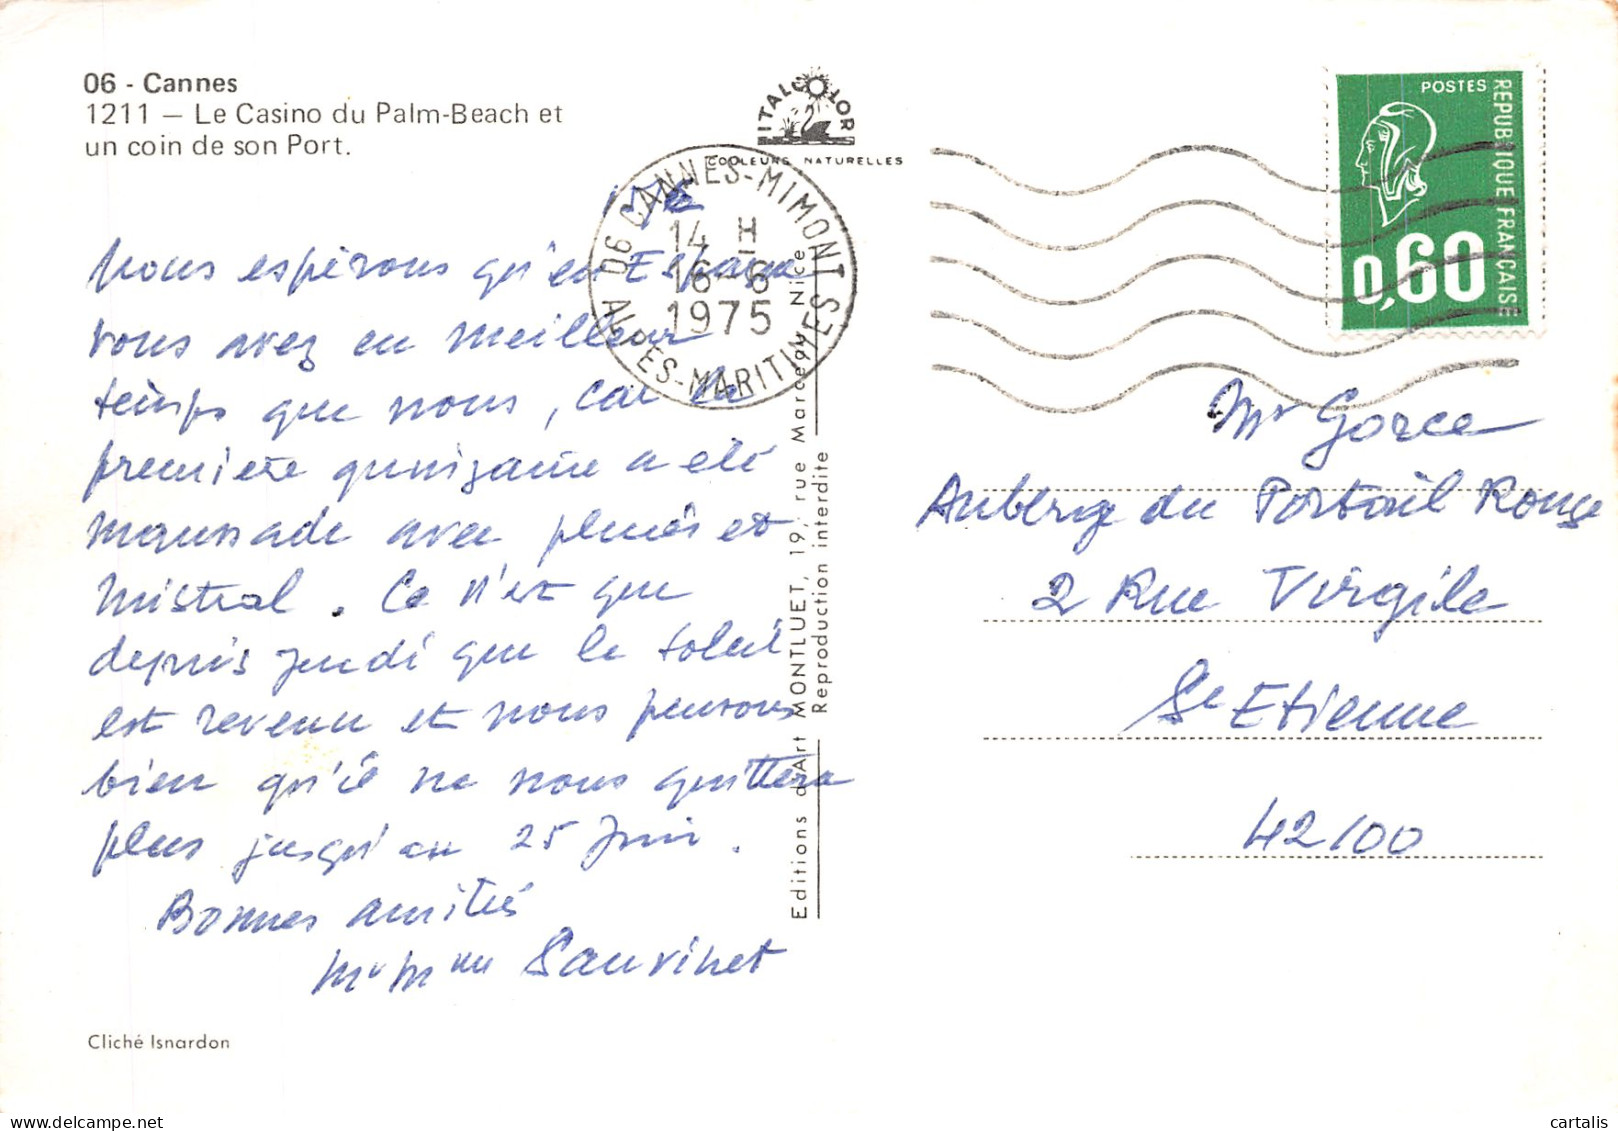 06 - Cannes
1211 — Le Casino du Palm-Beach et
un coin de son Port.
ITALCOLOR
COULEURS NATURELLES
06 CANNES-MIMONT
14 H
16-6
1975
ALPES-MARITIMES
POSTES
REPUBLIQUE FRANÇAISE
0,60
Nous espérons qu'en Espagne
vous avez eu meilleur
temps que nous, car la
première quinzaine a été
maussade avec pluies et
mistral. Ce n'est que
depuis jeudi que le soleil
est revenu et nous pensons
bien qu'il ne nous quittera
plus jusqu'au 25 Juin.
Bonnes amitiés
Mr Mme Sauvinet
Mr Gorce
Auberge du Portail Rouge
2 Rue Virgile
St Etienne
42100
Editions d'Art MONTLUET, 19, rue Marceau, Nice
Reproduction interdite
Cliché Isnardon
cartalis